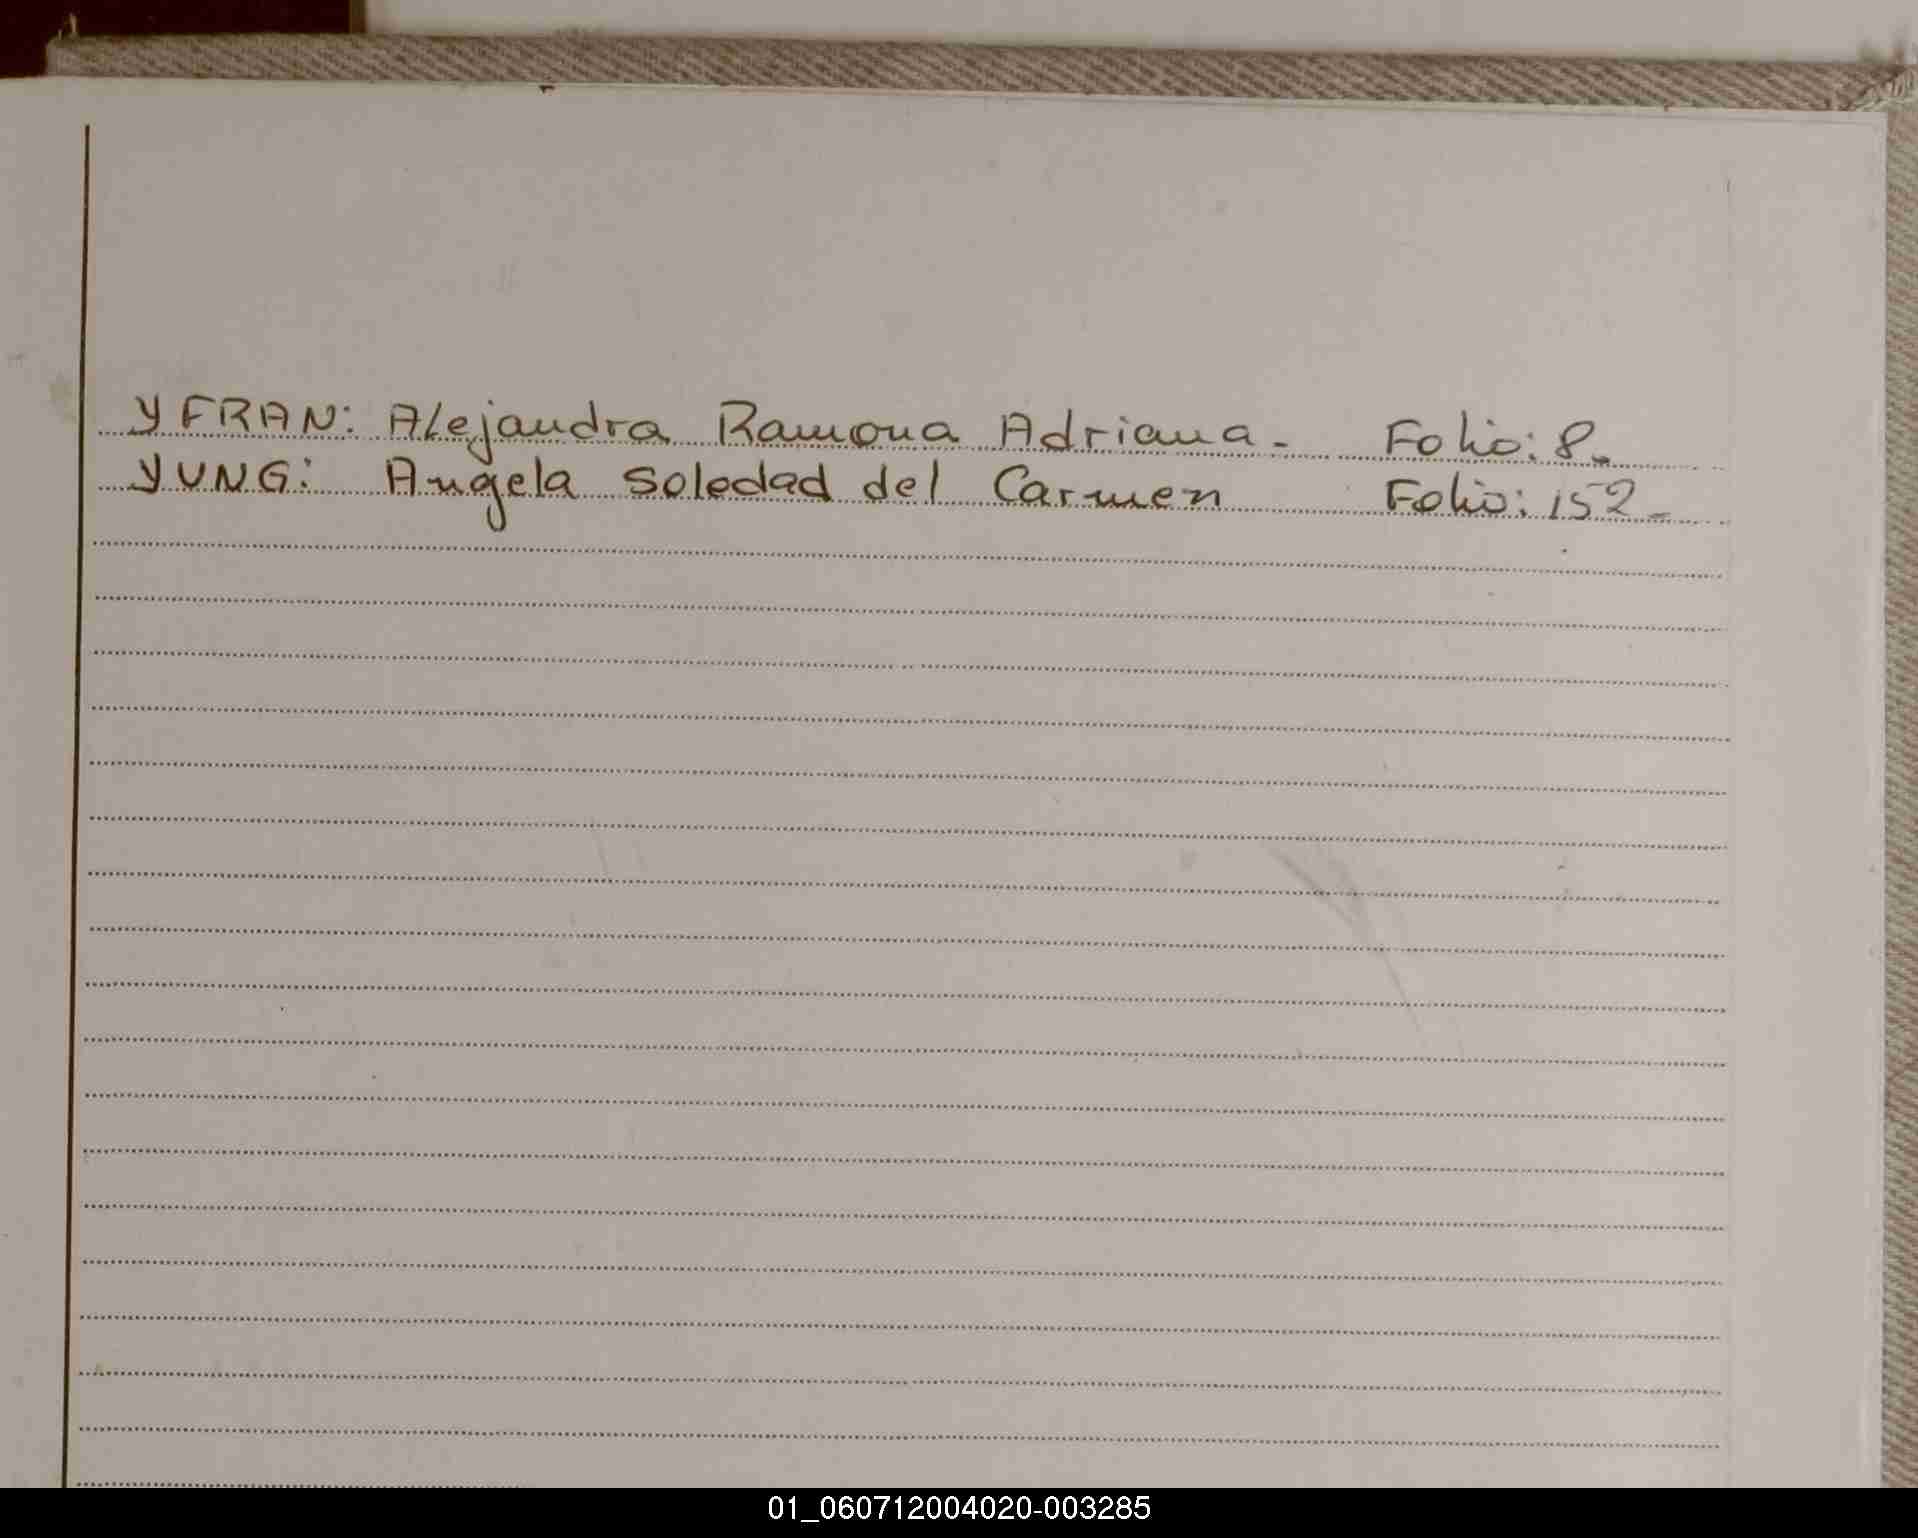 YFRAN: Alejandra Ramona Adriana. Folio: 8.
YUNG: Angela Soledad del Carmen Folio: 152.
01_060712004020-003285